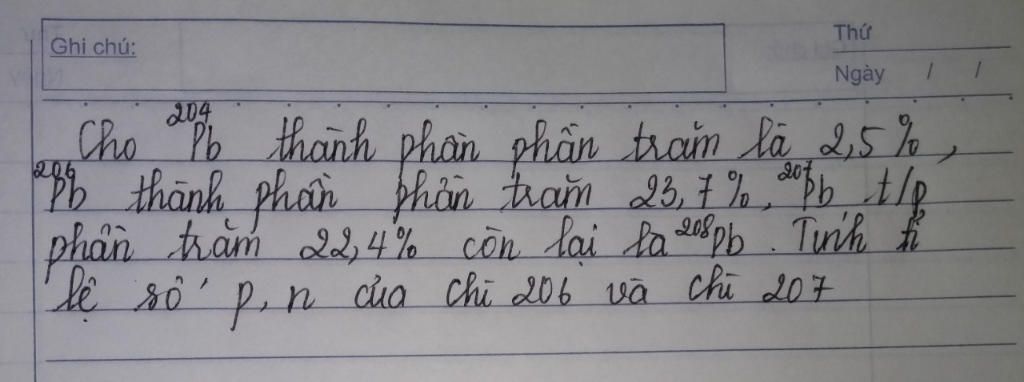 Ghi chú:
Thứ
Ngày / /
Cho ²⁰⁴Pb thành phần phần trăm là 2,5%,
²⁰⁶Pb thành phần phần trăm 23,7%, ²⁰⁷Pb t/p
phần trăm 22,4% còn lại là ²⁰⁸Pb. Tính tỉ
lệ số p, n của chì 206 và chì 207